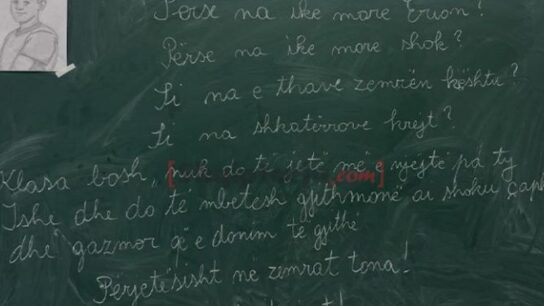 Përse na ike more Erion?
Përse na ike more shok?
Si na e thave zemrën kështu?
Si na shkatërrove krejt?
Klasa bosh, nuk do të jetë më e njejtë pa ty
Ishe dhe do të mbetesh gjithmonë ai shoku
dhe gazmor që e donim të gjithë
Përjetësisht në zemrat tona!